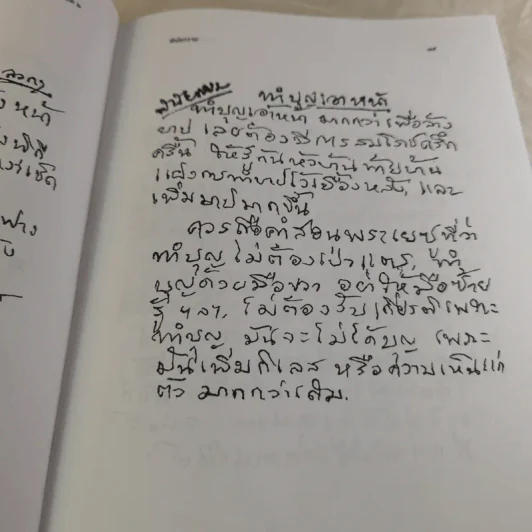 ทำบุญเอาหน้า
ทำบุญเอาหน้า มากกว่าเพื่อล้าง
บาป เลยต้องมีการสมโภชคึก
ครื้น ให้รู้กันหัวบ้านท้ายบ้าน
แฝงการทำบาปไว้เบื้องหลัง, และ
เพิ่มบาปมากขึ้น
ควรถือคำสอนพระเยซูที่ว่า
ทำบุญไม่ต้องเป่าแตร, "ทำ
บุญด้วยมือขวา อย่าให้มือซ้าย
รู้ ฯลฯ, ไม่ต้องรับเกียรติเพราะ
ทำบุญ มันจะไม่ได้บุญ เพราะ
มันเพิ่มกิเลส หรือความเห็นแก่
ตัว มากกว่าเดิม.